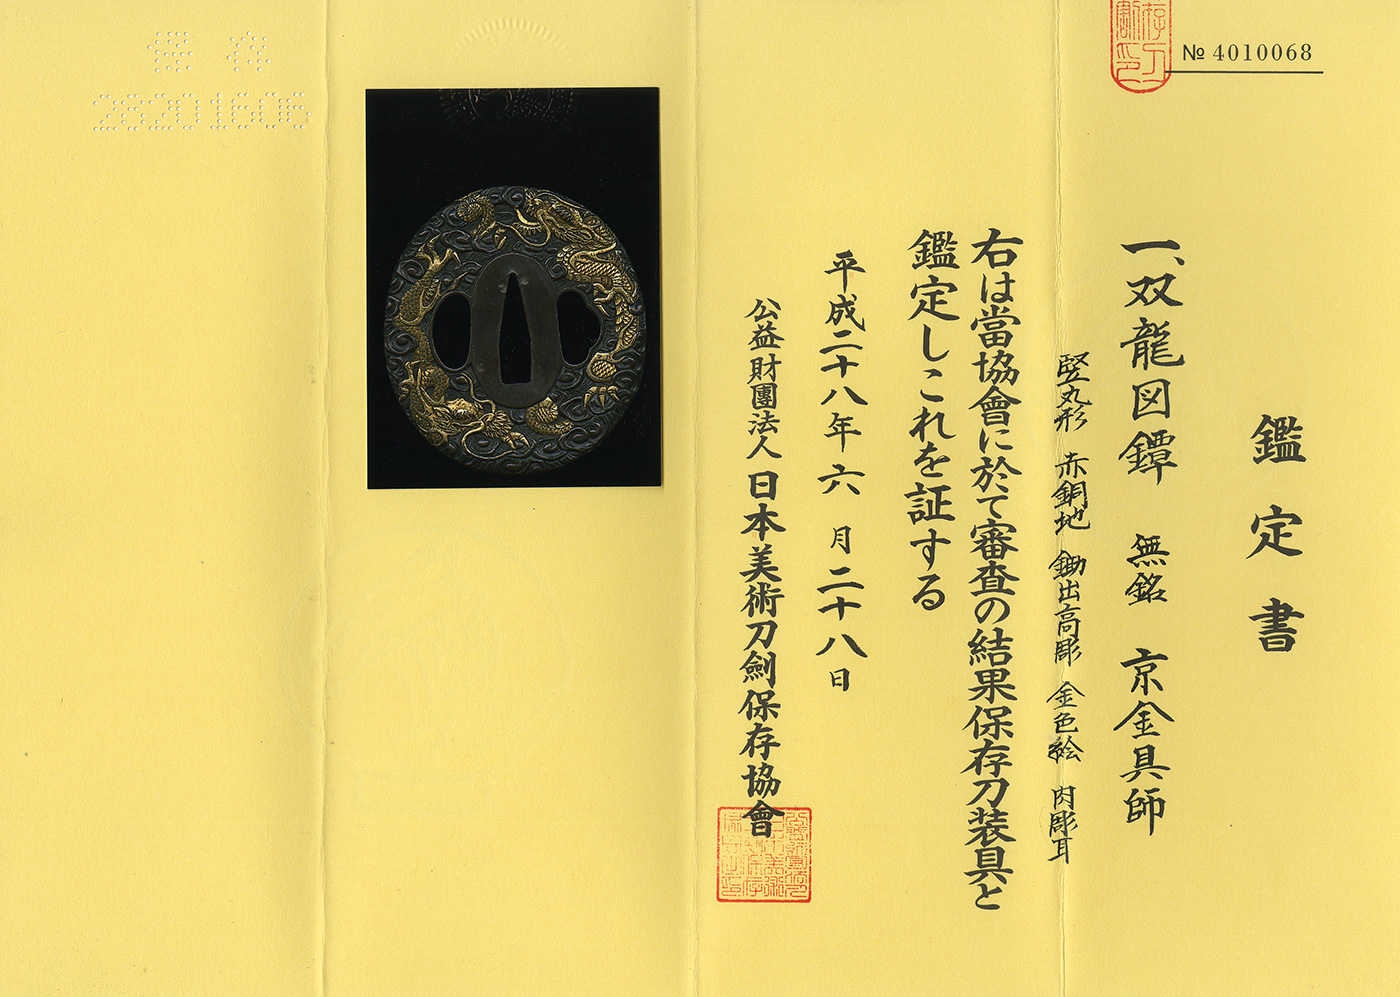 № 4010068
鑑定書
一、双龍図鐔 無銘 京金具師
竪丸形 赤銅地 鋤出高彫 金色絵 肉彫耳
右は當協會に於て審査の結果保存刀装具と
鑑定しこれを証する
平成二十八年六月二十八日
公益財團法人日本美術刀劍保存協會
保存
28201606